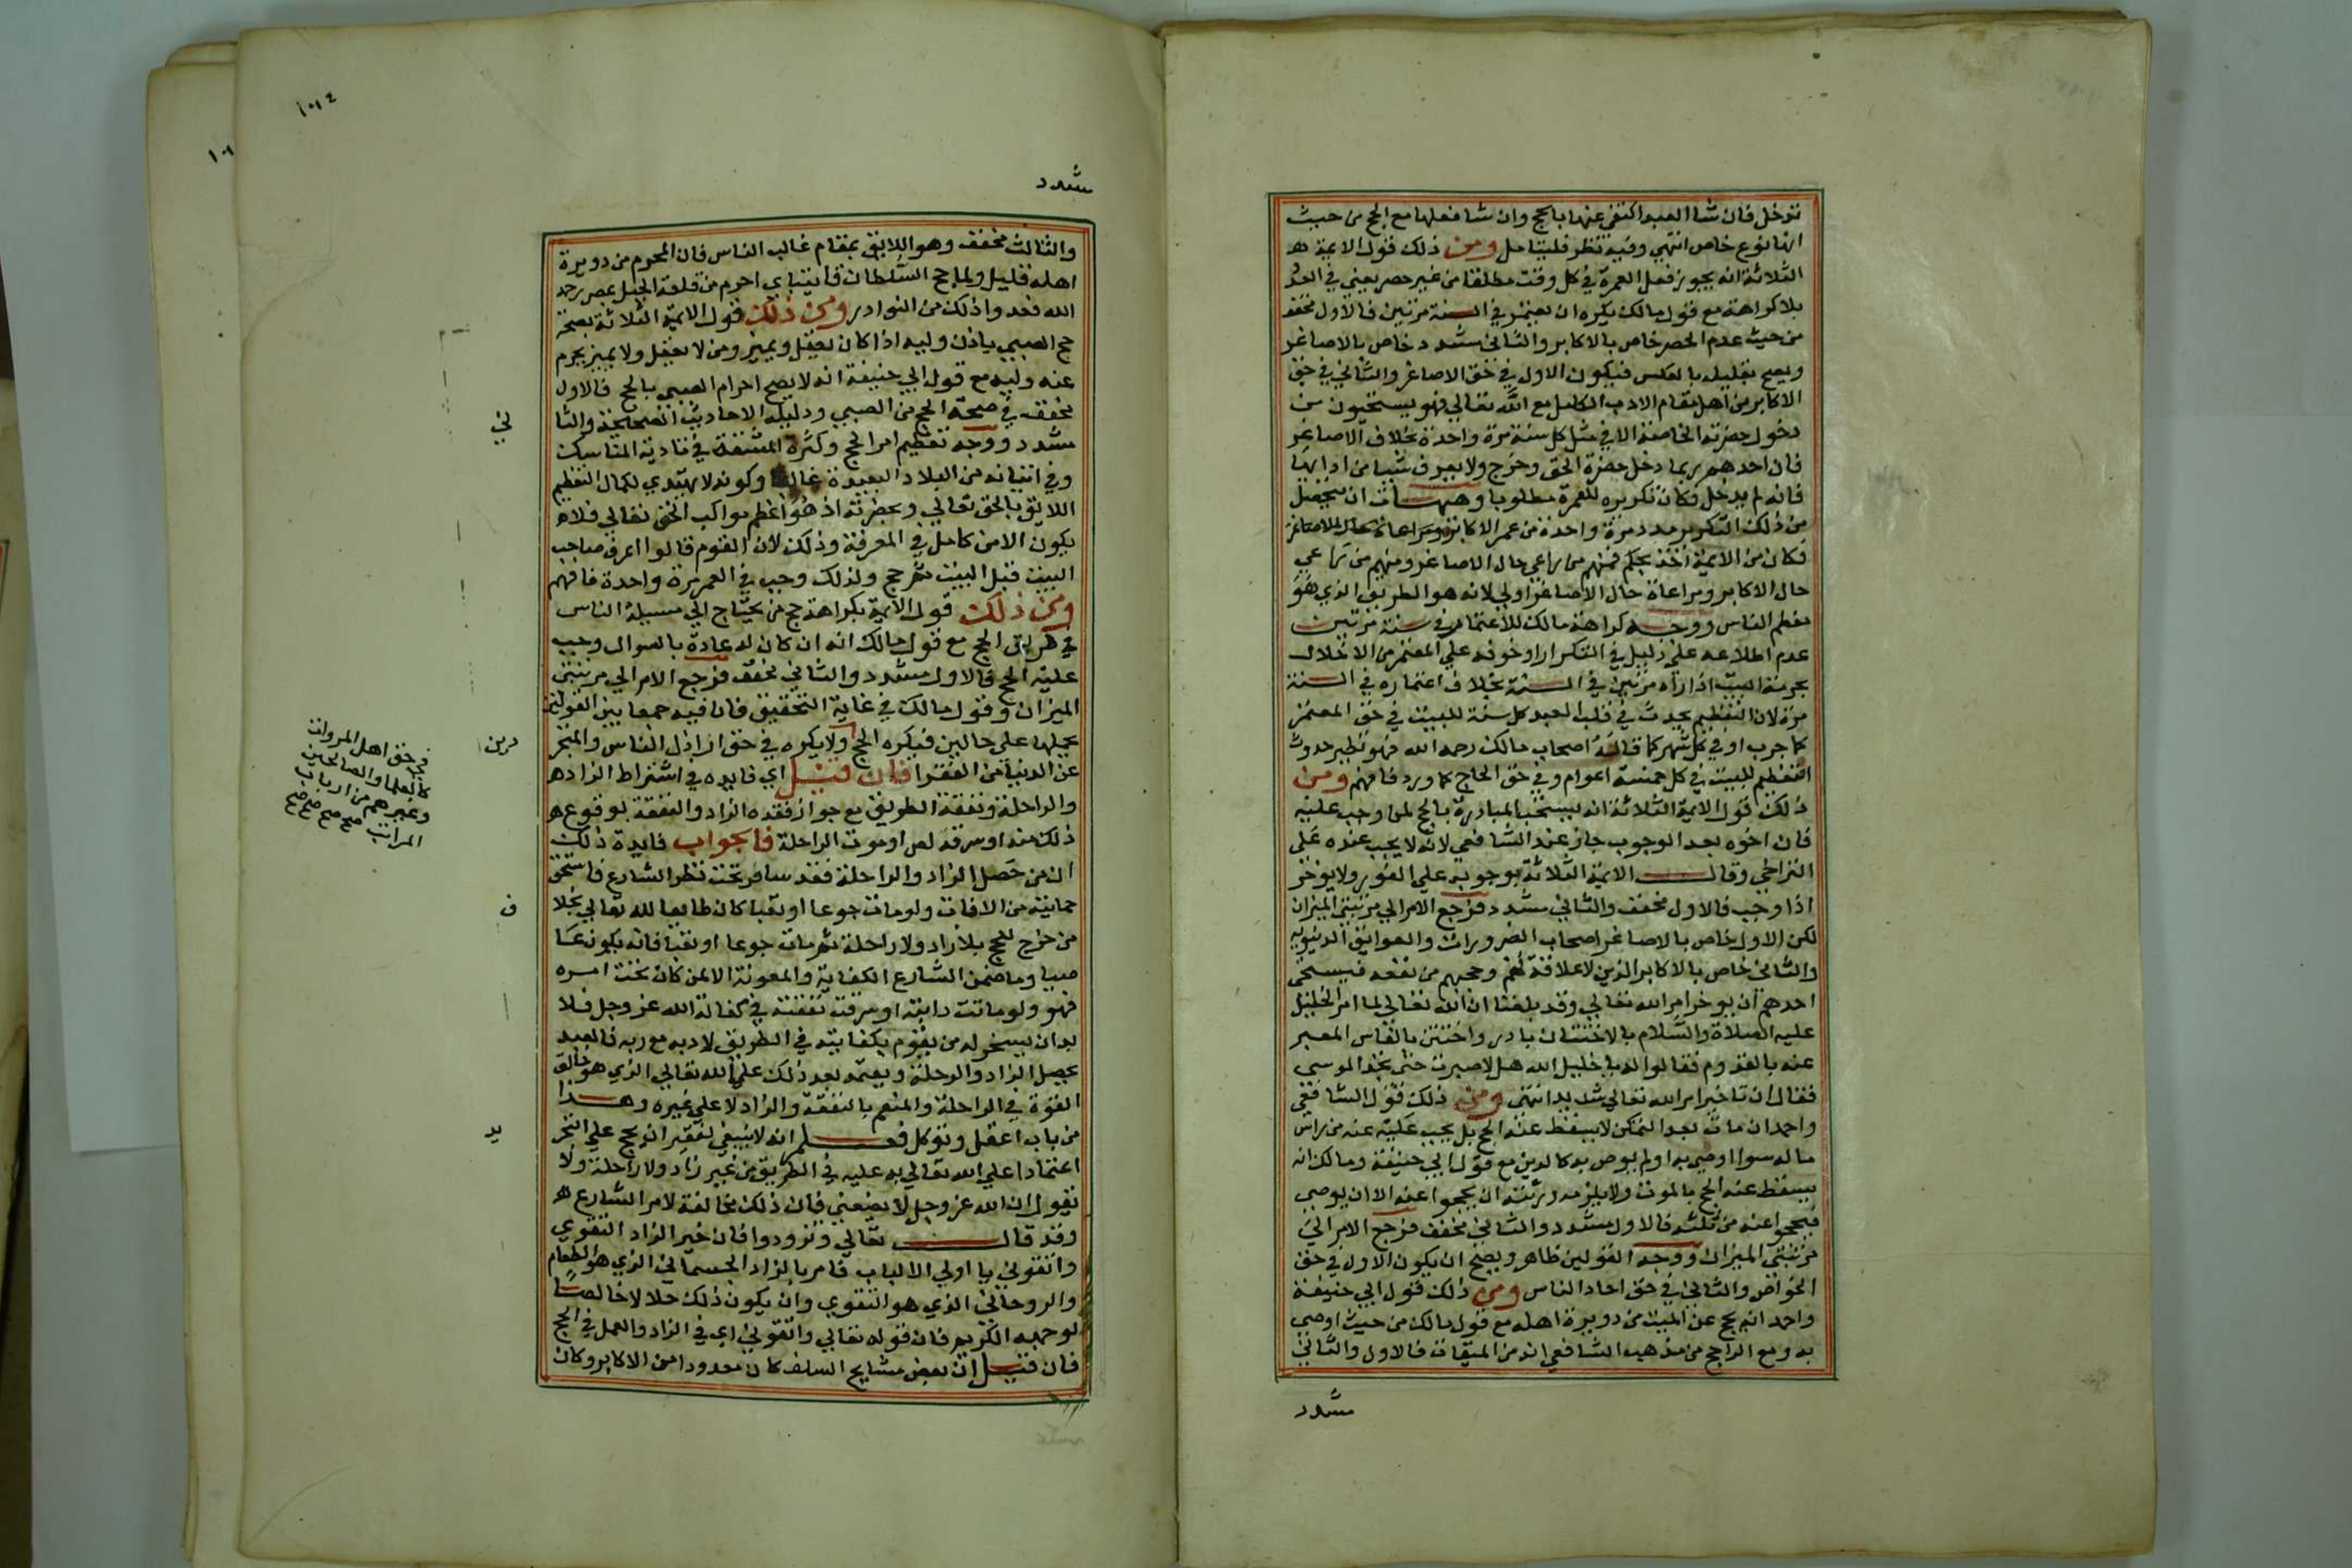 تتوخل فان شاا العبد اكتفى عنها بالحج وان شا فعلها مع الحج من حيث
انها نوع خاص انتهى وفيه نظر فليتامل ومن ذلك قول الايمة
الثلاثة انه يجوز فعل العمرة في كل وقت مطلقا من غير حصر يعني في العدد
بلا كراهة مع قول مالك يكره ان يعتمر في السنة مرتين فالاول مخفف
من حيث عدم الحصر خاص بالاكابر والثاني مشدد خاص بالاصاغر
ويصح تعليله بالعكس فيكون الاول في حق الاصاغر والثاني في حق
الاكابر من اهل مقام الادب الكامل مع الله تعالى فهو يستحيون من
دخول حضرته الخاصة الا في مثل كل سنة مرة واحدة بخلاف الاصاغر
فان احدهم ربما دخل حضرة الحق وخرج ولا يعرف شيا من ادابها
فانه لم يدخل فكان تكريره للعمرة مطلوبا وهيهات ان يحصل
من ذلك التكرير مدد مرة واحدة من عمر الاكابر ومراعاة حال الاصاغر
فكان من الايمة اخذ بحكم فمنهم من راعى حال الاصاغر ومنهم من راعي
حال الاكابر ومراعاة حال الاصاغر اولى لانه هو الطريق الذي هو
معظم الناس ووجه كراهة مالك للاعتمار في سنة مرتين
عدم اطلاعه على دليل في التكرار او خوفه على المعتمر من الاخلال
بحرمة البيت اذا راه مرتين في السنة بخلاف اعتماره في السنة
مرة لان التعظيم يحدث في قلب العبد كل سنة للبيت في حق المعتمر
كما جرب او في كل شهر كما قاله اصحاب مالك رحمه الله فهو نظير حدوث
التعظيم للبيت في كل خمسة اعوام وفي حق الحاج كما ورد فافهم ومن
ذلك قول الايمة الثلاثة انه يستحب المبادرة بالحج لمن وجب عليه
فان اخره بعد الوجوب جاز عند الشافعي لانه لا يجب عنده على
التراخي وقال الايمة الثلاثة بوجوبه على الفور ولا يوخر
اذا وجب فالاول مخفف والثاني مشدد فرجع الامر الى مرتبتي الميزان
لكن الاول خاص بالاصاغر اصحاب الضرورات والعوايق الدنيويه
والثاني خاص بالاكابر الذين لا علاقة لهم وحجهم من نفعه فيستحي
احدهم ان يوخر امر الله تعالى وقد بلغنا ان الله تعالى لما امر الخليل
عليه الصلاة والسلام بالاختتان بادر واختتن بالفاس المعبر
عنه بالقدوم فقالوا له يا خليل الله هلا صبرت حتى تجد الموسى
فقال ان تاخير امر الله تعالى شديد انتهى ومن ذلك قول الشافعي
واحمد ان مات بعد التمكن لا يسقط عنه الحج بل يجب عليه عنه من راس
ماله سوا اوصى به او لم يوص به كالدين مع قول ابي حنيفة ومالك انه
يسقط عنه الحج بالموت ولا يلزم ورثته ان يحجوا عنه الا ان يوصي
فيحجوا عنه من ثلثه فالاول مشدد والثاني مخفف فرجع الامر الى
مرتبتي الميزان ووجه القولين ظاهر ويصح ان يكون الاول في حق
الخواص والثاني في حق احاد الناس ومن ذلك قول ابي حنيفة
واحمد انه يحج عن الميت من دويرة اهله مع قول مالك من حيث اوصى
به ومع الراجح من مذهب الشافعي انه من الميقات فالاول والثاني
مشدد
١٠١٤
مشدد
والثالث مخفف وهو اللايق بمقام غالب الناس فان المحرم من دويرة
اهله قليل ولما حج السلطان قايتباي احرم من قلعة الجبل بمصر رحمه
الله فعدوا ذلك من النوادر ومن ذلك قول الايمة الثلاثة بصحة
حج الصبي باذن وليه اذا كان يعقل ويميز ومن لا يعقل ولا يميز يحرم
عنه وليه مع قول ابي حنيفة انه لا يصح احرام الصبي بالحج فالاول
مخفف في صحة الحج من الصبي ودليله الاحاديث الصحيحة والثا
ني
مشدد ووجه تعظيم امر الحج وكثرة المشقة في تادية المناسك
وفي اتيانه من البلاد البعيدة غالبا وكونه لا يهتدي لكمال التعظيم
اللايق بالحق تعالى وبحضرته اذ هو اعظم مواكب الحق تعالى فلا
يكون الا من كامل في المعرفة وذلك لان القوم قالوا اعرف صاحب
البيت قبل البيت ثم حج ولذلك وجب في العمر مرة واحدة فافهم
ومن ذلك قول الايمة بكراهة حج من يحتاج الى مسيلة الناس
في طريق الحج مع قول مالك انه ان كان له عادة بالسوال وجب
عليه الحج فالاول مشدد والثاني مخفف فرجع الامر الى مرتبتي
الميزان وقول مالك في غاية التحقيق فان فيه جمعا بين القولين
بحملها على حالين فيكره الحج ولا يكره في حق اراذل الناس والمتجر
في حق اهل المروات
كالعلما والصالحين
وغيرهم من ارباب
المراتب صح صح صح صح
دين
عن الدنيا من الفقرا فان قيل اي فايده في اشتراط الزاد
والراحلة ونفقة الطريق مع جواز فقده الزاد والنفقة لوقوع
ذلك منه او سرقة لص او موت الراحلة فالجواب فايدة ذلك
ان من حصل الزاد والراحلة فقد سافر تحت نظر الشارع فاستحق
حمايته من الافات ولو مات جوعا او تعبا كان طايعا لله تعالى بخلا
ف
من خرج للحج بلا زاد ولا راحلة ثم مات جوعا او تعبا فانه يكون عا
صيا وما ضمن الشارع الكفاية والمعونة الا لمن كان تحت امره
فهو ولو ماتت دابته او سرقت نفقته في كفالة الله عز وجل فلا
بد ان يسخر له من يقوم بكفايته في الطريق لادبه مع ربه فالعبد
يحصل الزاد والرحلة ويعتمد بعد ذلك على الله تعالى الذي هو خالق
القوة في الراحلة والمنعم بالنفقة والزاد لا على غيره وهذا
من باب اعقل وتوكل فعلم انه لا ينبغي لفقير ان يحج على التجر
يد
اعتمادا على الله تعالى به عليه في الطريق من غير زاد ولا راحلة ولا
نقول ان الله عز وجل لا يضيعني فان ذلك مخالفة لامر الشارع
وقد قال تعالى وتزودوا فان خير الزاد التقوى
واتقوني يا اولي الالباب فامر بالزاد الجسماني الذي هو الطعام
والروحاني الذي هو التقوى وان يكون ذلك حلالا خالصا
لوجهه الكريم فان قوله تعالى واتقوني اي في الزاد والعمل في الحج
فان قيل ان بعض مشايخ السلف كان معدودا من الاكابر وكان